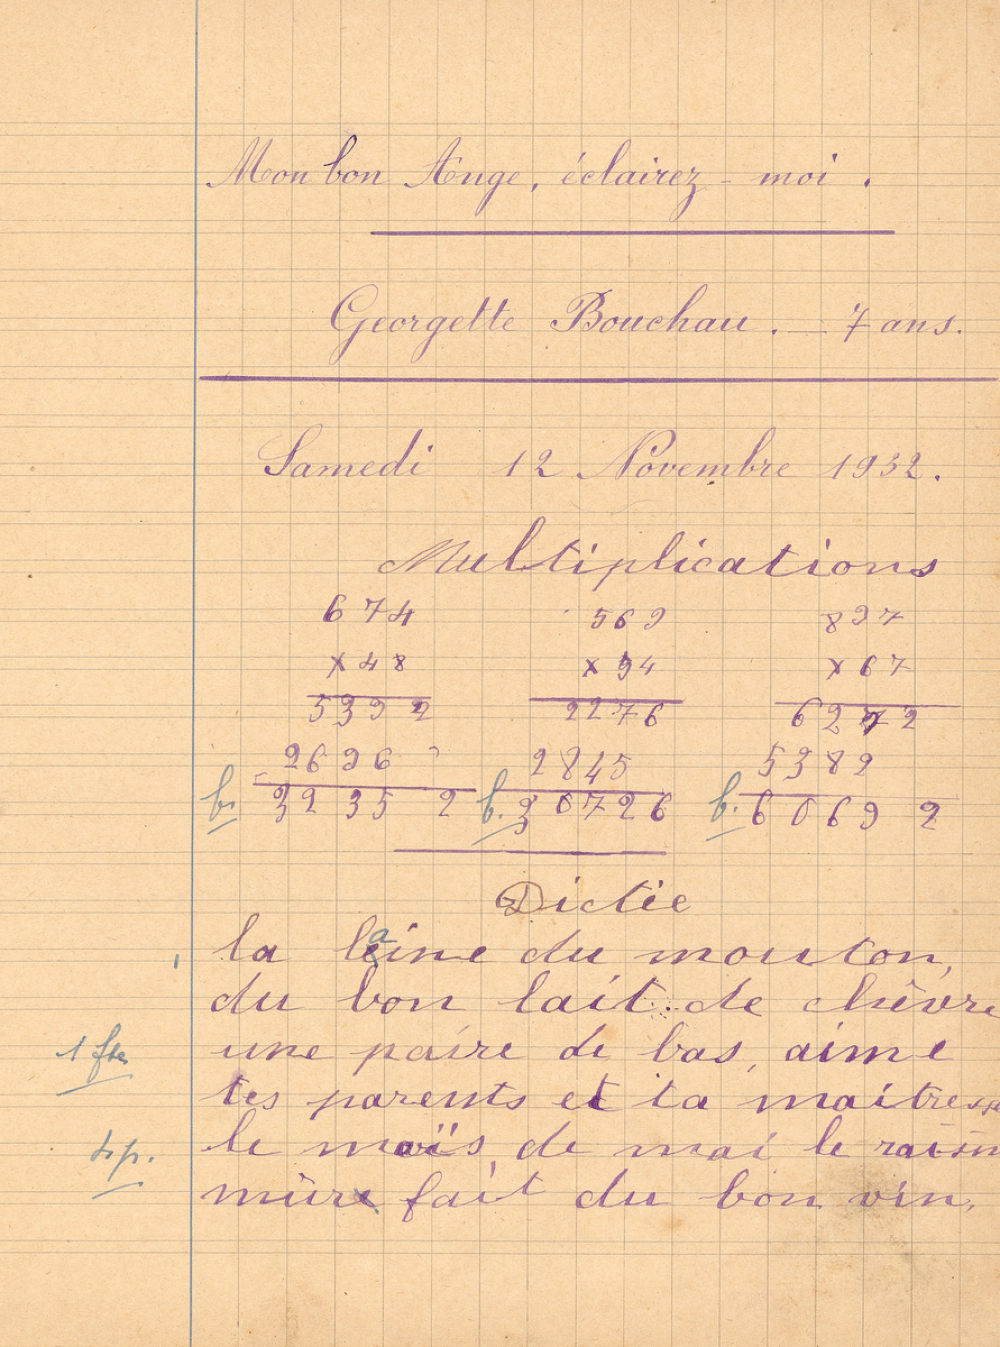 Mon bon Ange, éclairez-moi.
Georgette Bouchau. - 7 ans.
Samedi 12 Novembre 1932.
Multiplications
674 569 897
x 48 x 94 x 67
5392 2276 6272
2696 2845 5382
b. 32352 b. 30726 b. 60692
Dictée
la laine du mouton,
du bon lait de chèvre
1 fte une paire de bas, aime
tes parents et ta maîtresse
le maïs, de mai le raisin
mûre fait du bon vin.